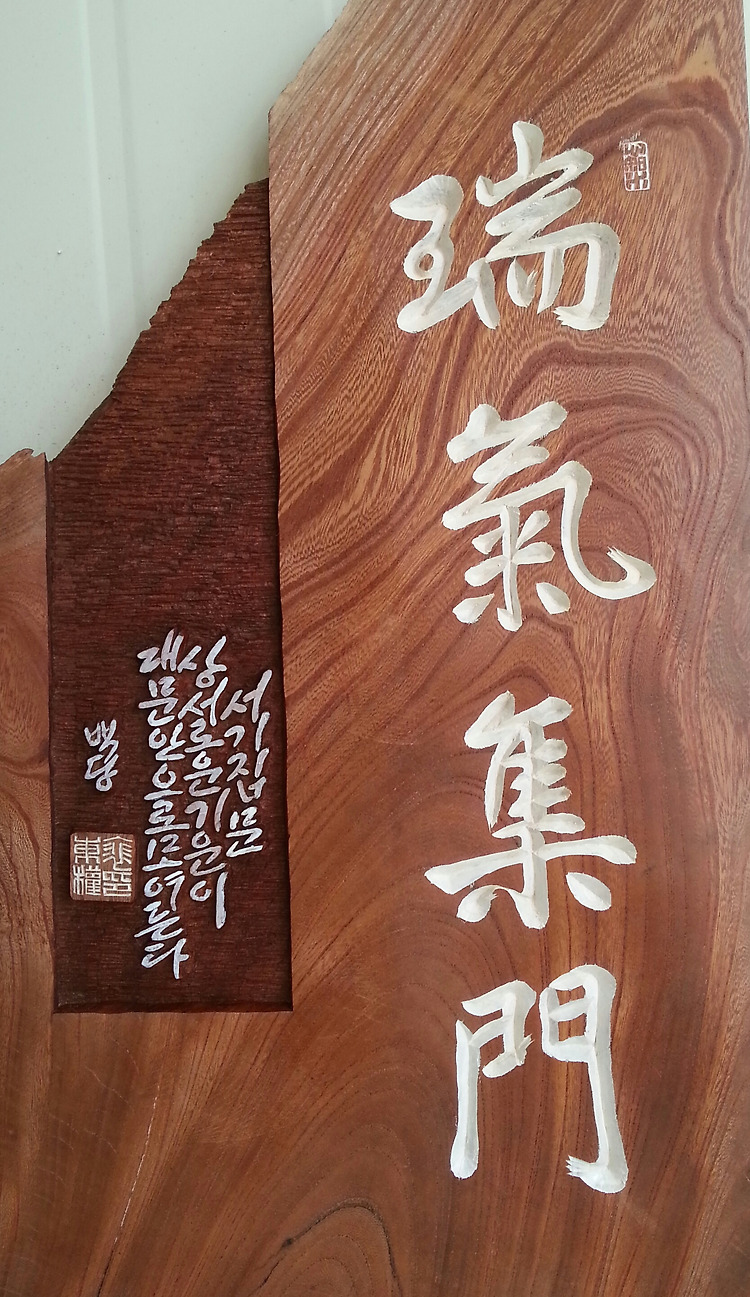 瑞氣集門
서기집문
상서로운기운이
대문안으로모여든다
백당